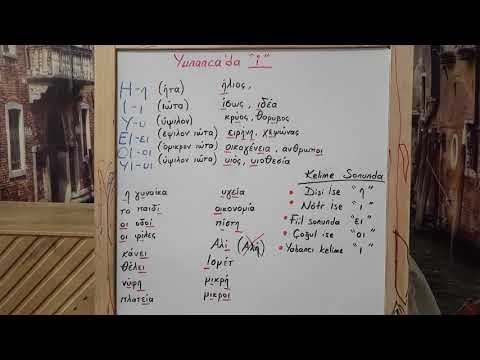 Yunanca'da "i"
Η-η (ήτα) ήλιος,
Ι-ι (ιώτα) ίσως, ιδέα
Υ-υ (ύψιλον) κρυος, θόρυβος
ΕΙ-ει (έψιλον ιώτα) ειρήνη, χειμώνας
ΟΙ-οι (όμικρον ιώτα) οικογένεια, ανθρωποι
ΥΙ-υι (ύψιλον ιώτα) υιός, υιοθεσία
Kelime Sonunda
• Dişi ise "η"
• Nötr ise "ι"
• Fiil sonunda "ει"
• Çoğul ise "οι"
• Yabancı kelime "ι"
η γυναίκα υγεία
το παιδί οικονομία
οι οδοί πίστη
οι φίλες Αλί (Αλή)
κάνει Ισμέτ
θέλει μικρή
νύφη μικροι
πλατεία